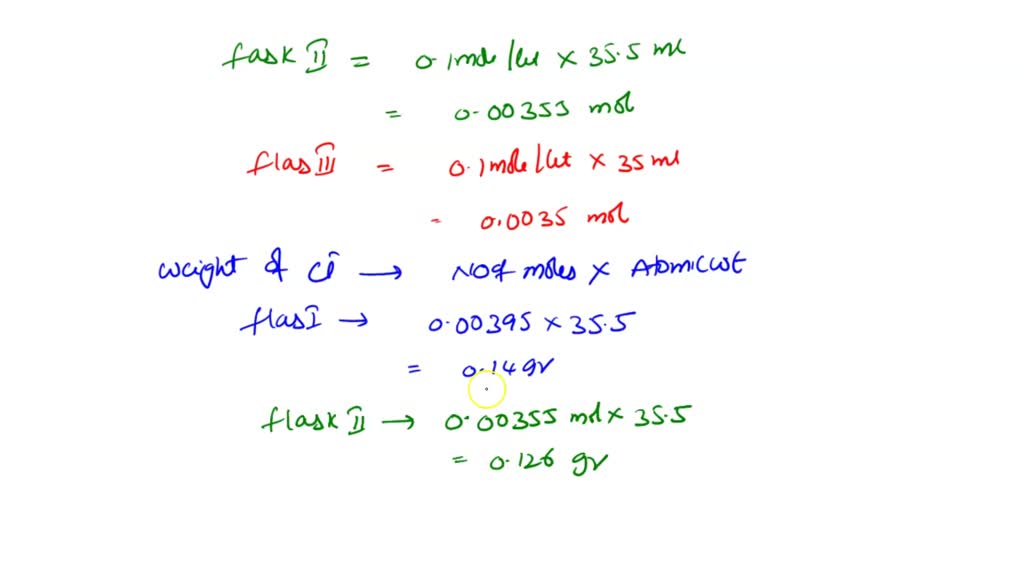 fask II = 0.1mole/lit × 35.5 ml
= 0.00355 mol
flas III = 0.1mole/lit × 35 ml
= 0.0035 mol
weight of Cl⁻ → No of moles × Atomic wt
flas I → 0.00395 × 35.5
= 0.14 gr
flask II → 0.00355 mol × 35.5
= 0.126 gr